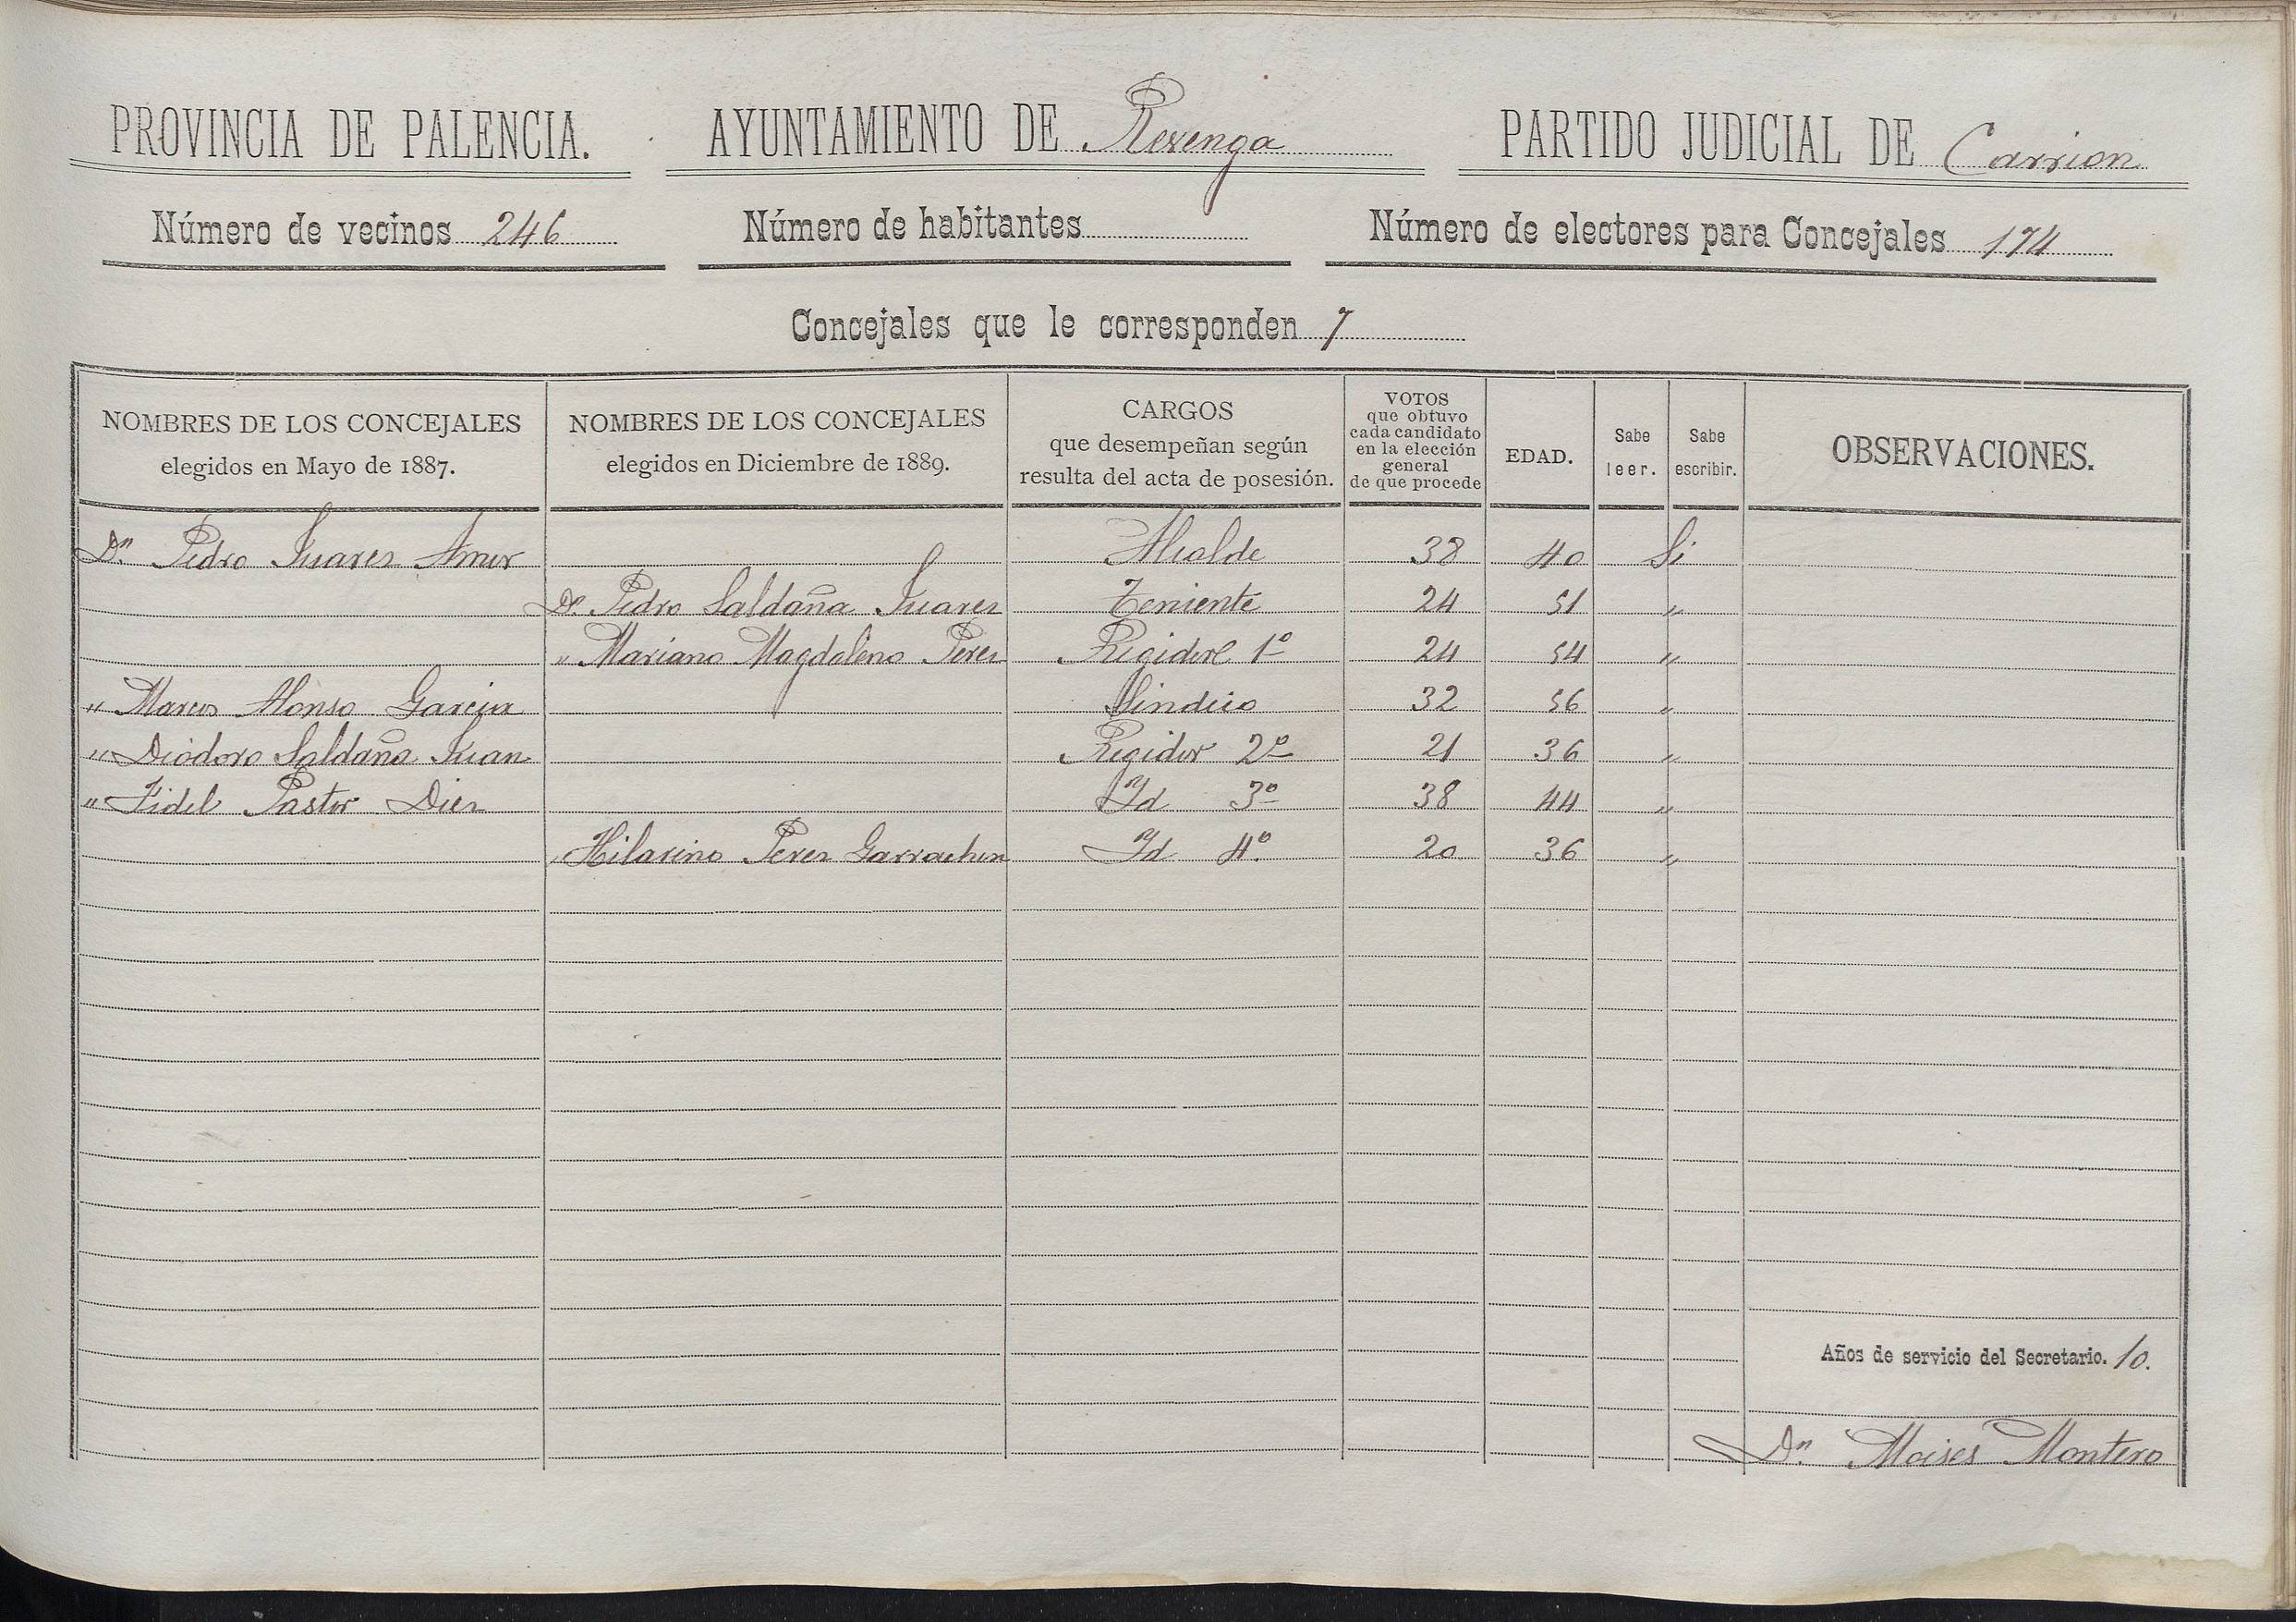 PROVINCIA DE PALENCIA. AYUNTAMIENTO DE Revenga PARTIDO JUDICIAL DE Carrion
Número de vecinos 246 Número de habitantes Número de electores para Concejales 174
Concejales que le corresponden 7
NOMBRES DE LOS CONCEJALES elegidos en Mayo de 1887. NOMBRES DE LOS CONCEJALES elegidos en Diciembre de 1889. CARGOS que desempeñan según resulta del acta de posesión. VOTOS que obtuvo cada candidato en la elección general de que procede EDAD. Sabe leer. Sabe escribir. OBSERVACIONES.
Dn. Pedro Juarez Alcalde 38 40 Si
Dn. Pedro Saldaña Juarez Teniente 24 51 "
" Mariano Magdaleno Perez Regidor 1º 24 54 "
" Marcos Alonso Garcia Sindico 32 56 "
" Diodoro Saldaña Juan Regidor 2º 21 36 "
" Fidel Pastor Diez Id 3º 38 44 "
" Hilarino Perez Garrachon Id 4º 20 36 "
Años de servicio del Secretario. 10.
Dn. Moises Montero